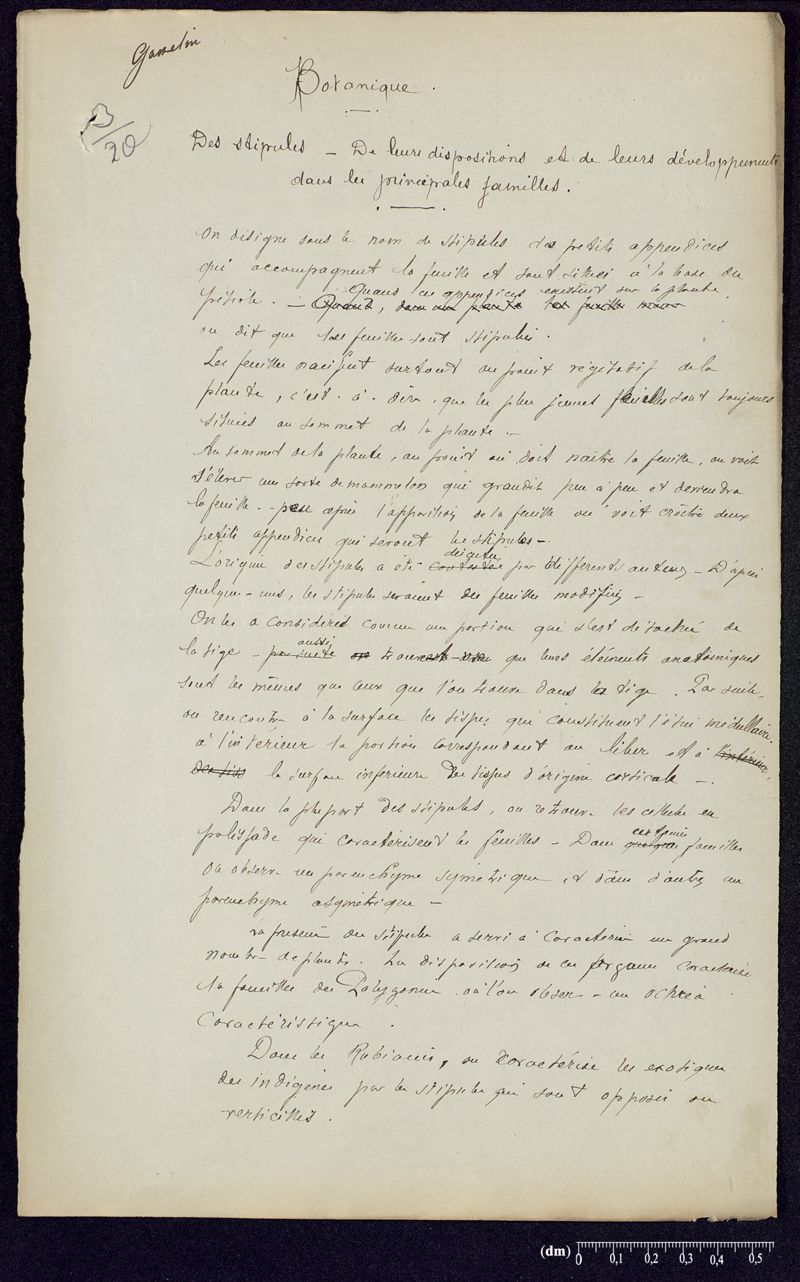 Gosselin
Botanique.
13/20
Des stipules - De leurs dispositions et de leurs développements
dans les principales familles.
On désigne sous le nom de stipules des petits appendices
qui accompagnent la feuille et sont situés à la base du
pétiole. - Quand ces appendices existent sur la plante,
on dit que les feuilles sont stipulées.
Les feuilles naissent surtout au point végétatif de la
plante, c'est-à-dire que les plus jeunes feuilles sont toujours
situées au sommet de la plante. -
Au sommet de la plante, au point où doit naître la feuille, on voit
s'élever une sorte de mamelon qui grandit peu à peu et deviendra
la feuille. - peu après l'apparition de la feuille on voit croître deux
petits appendices qui seront les stipules -
L'origine des stipules a été discutée par différents auteurs - D'après
quelques-uns, les stipules seraient des feuilles modifiées -
On les a considérés comme une portion qui s'est détachée de
la tige - aussi trouve-t-on que leurs éléments anatomiques
sont les mêmes que ceux que l'on trouve dans la tige. Par suite,
on rencontre à la surface les tissus qui constituent l'étui médullaire.
à l'intérieur la portion correspondant au liber et à l'intérieur,
des tissus la surface inférieure des tissus d'origine corticale -.
Dans la plupart des stipules, on retrouve les cellules en
palissade qui caractérisent les feuilles - Dans certaines familles
on observe un parenchyme symétrique et dans d'autres un
parenchyme asymétrique -
La présence des stipules a servi à caractériser un grand
nombre de plantes. La disposition de ces organes caractérise
la famille des Polygonées où l'on observe un ochréa
caractéristique.
Dans les Rubiacées, on caractérise les exotiques
des indigènes par les stipules qui sont opposées ou
verticillés.
(dm) 0 0,1 0,2 0,3 0,4 0,5